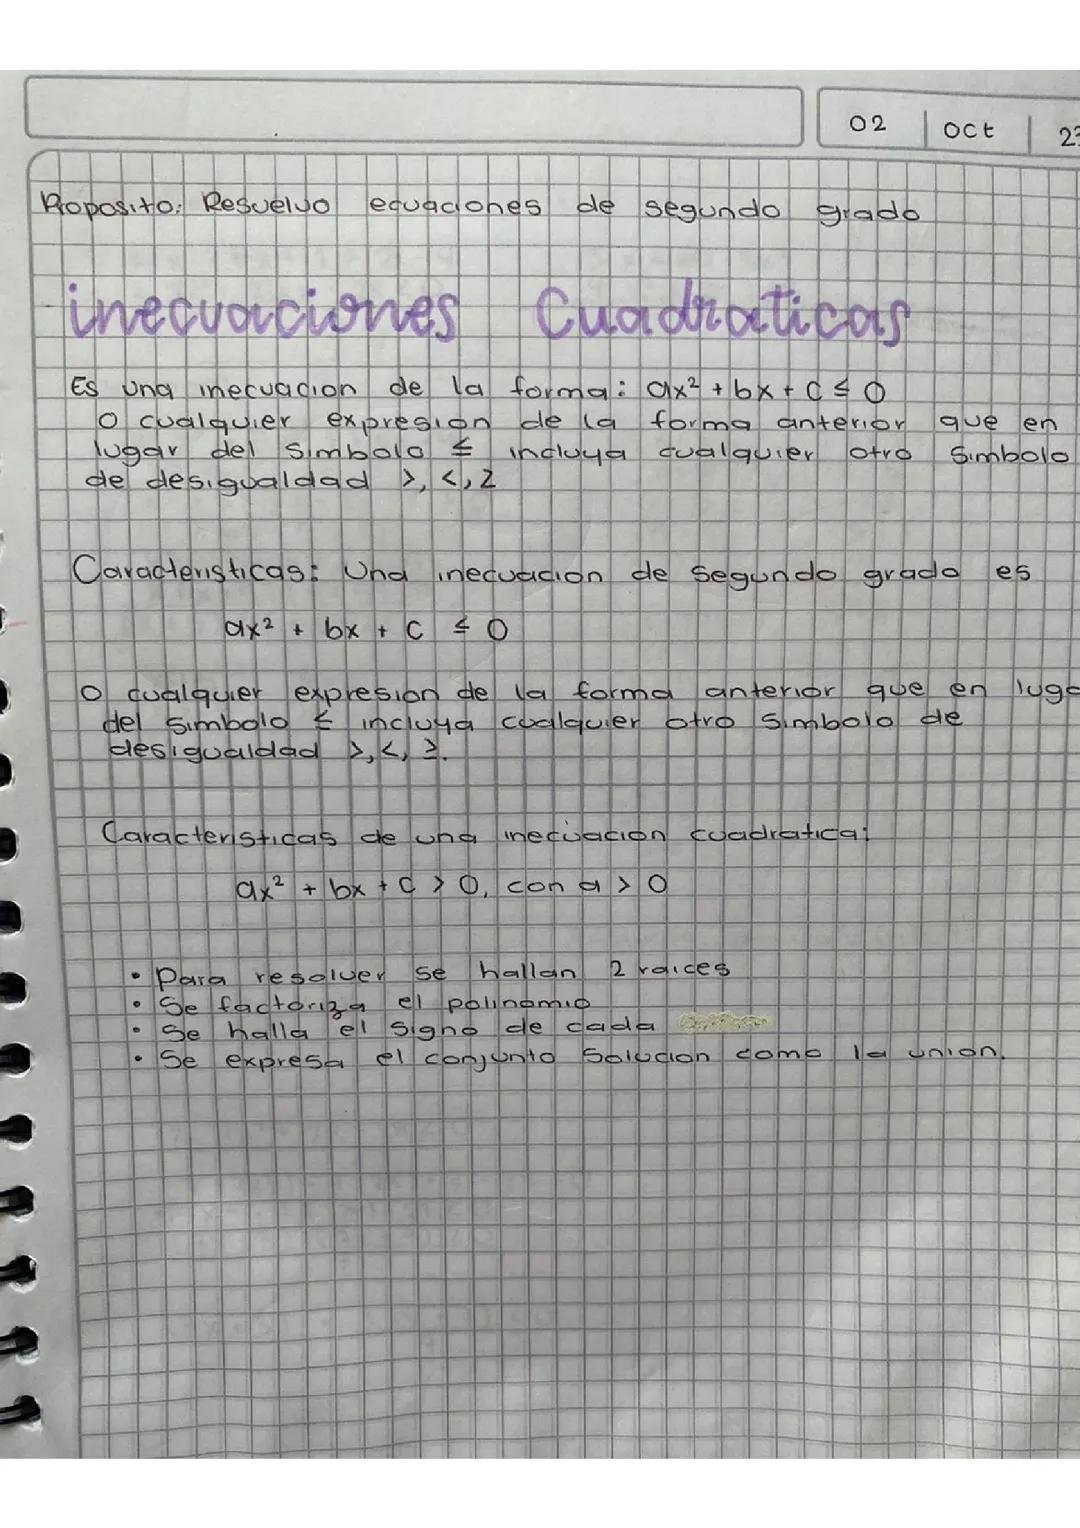 02 oct 23
Proposito: Resuelvo ecuaciones de segundo grado
inecuaciones Cuadraticas
Es una inecuacion de la forma: ax² + bx + c ≤ 0
o cualquier expresion de la forma anterior que en
lugar del simbolo ≤ incluya cualquier otro simbolo
de desigualdad >, <, ≥
Caracteristicas: Una inecuacion de segundo grado es
ax² + bx + c ≤ 0
o cualquier expresion de la forma anterior que en luga
del simbolo ≤ incluya cualquier otro simbolo de
desigualdad >, <, ≥.
Caracteristicas de una inecuacion cuadratica:
ax² + bx + c > 0, con a > 0
• Para resolver se hallan 2 raices
• Se factoriza el polinomio
• Se halla el signo de cada
• Se expresa el conjunto solucion como la union.